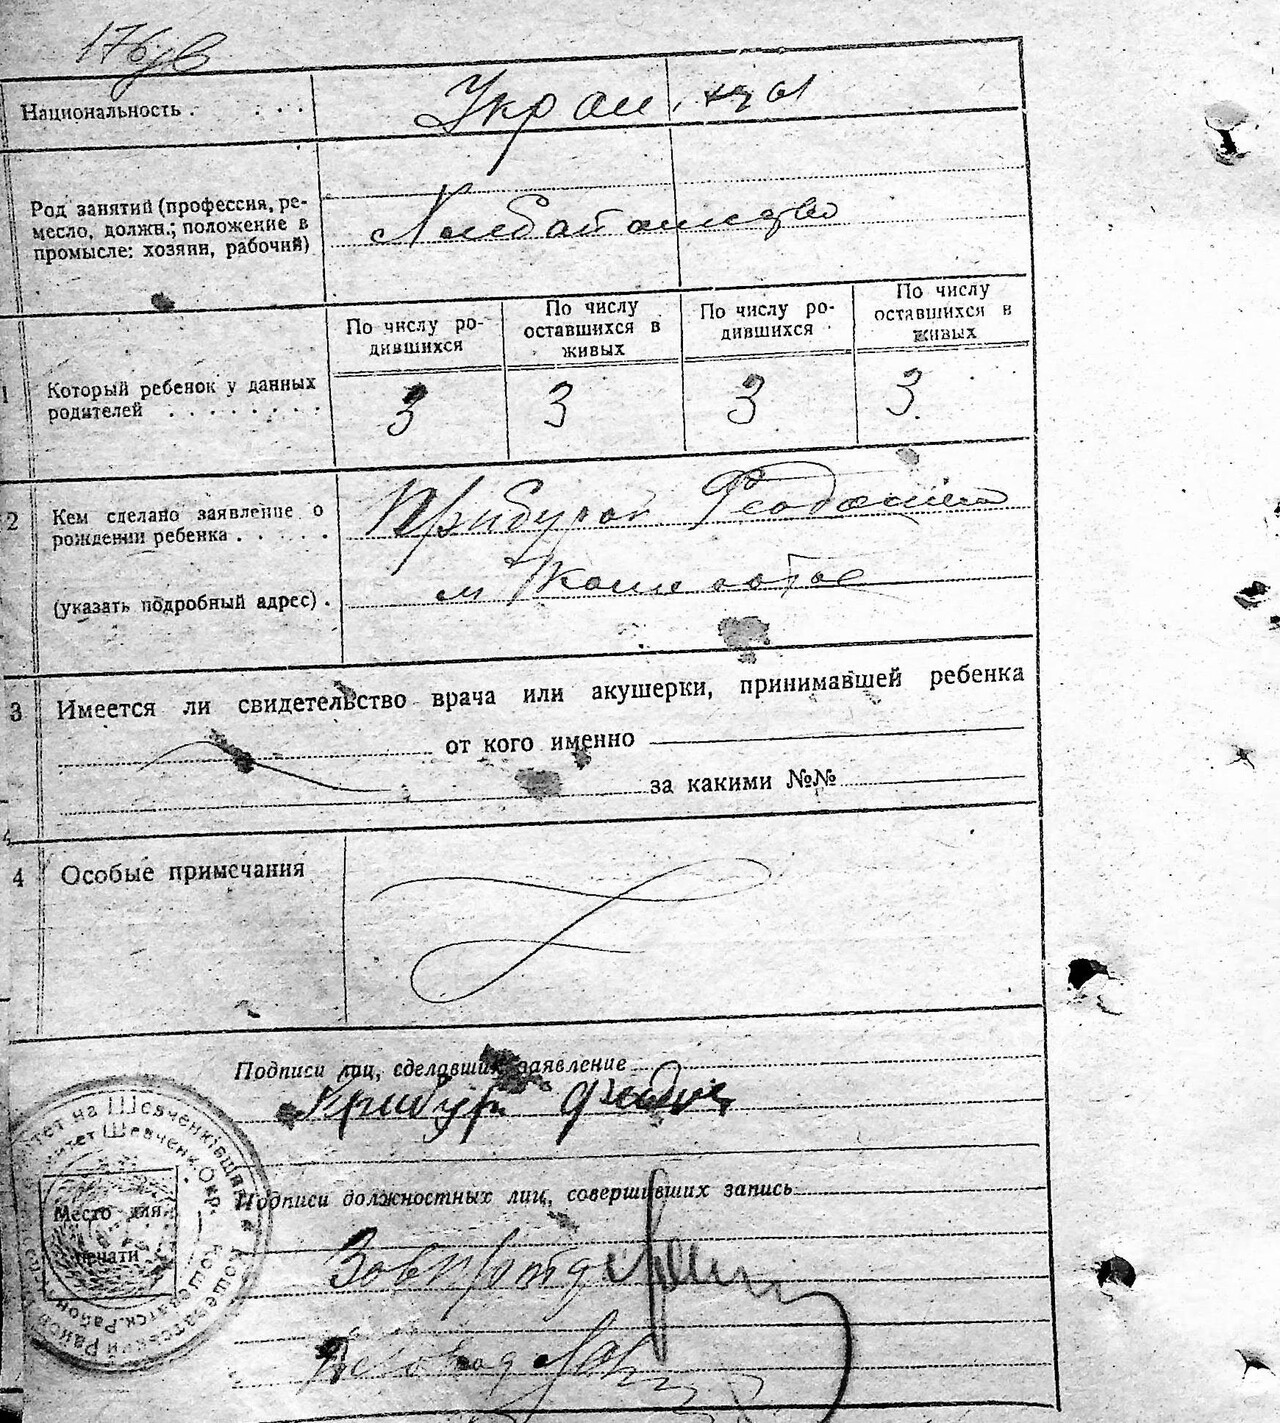 Национальность . . . .
Украинцы
Род занятий (профессия, ре-
месло, должн.; положение в
промысле: хозяин, рабочий)
Хлебопашество
По числу ро-
дившихся
По числу
оставшихся в
живых
По числу ро-
дившихся
По числу
оставшихся в
живых
1 Который ребенок у данных
родителей . . . . . . . .
3 3 3 3
2 Кем сделано заявление о
рождении ребенка . . . . .
Феодосий
(указать подробный адрес) .
м
3 Имеется ли свидетельство врача или акушерки, принимавшей ребенка
от кого именно
за какими №№
4 Особые примечания
Подписи лиц, сделавших заявление
Подписи должностных лиц, совершивших запись
Место для
печати
на Шевченківщині
Шевченк. Окр.
Кошеватск. Район